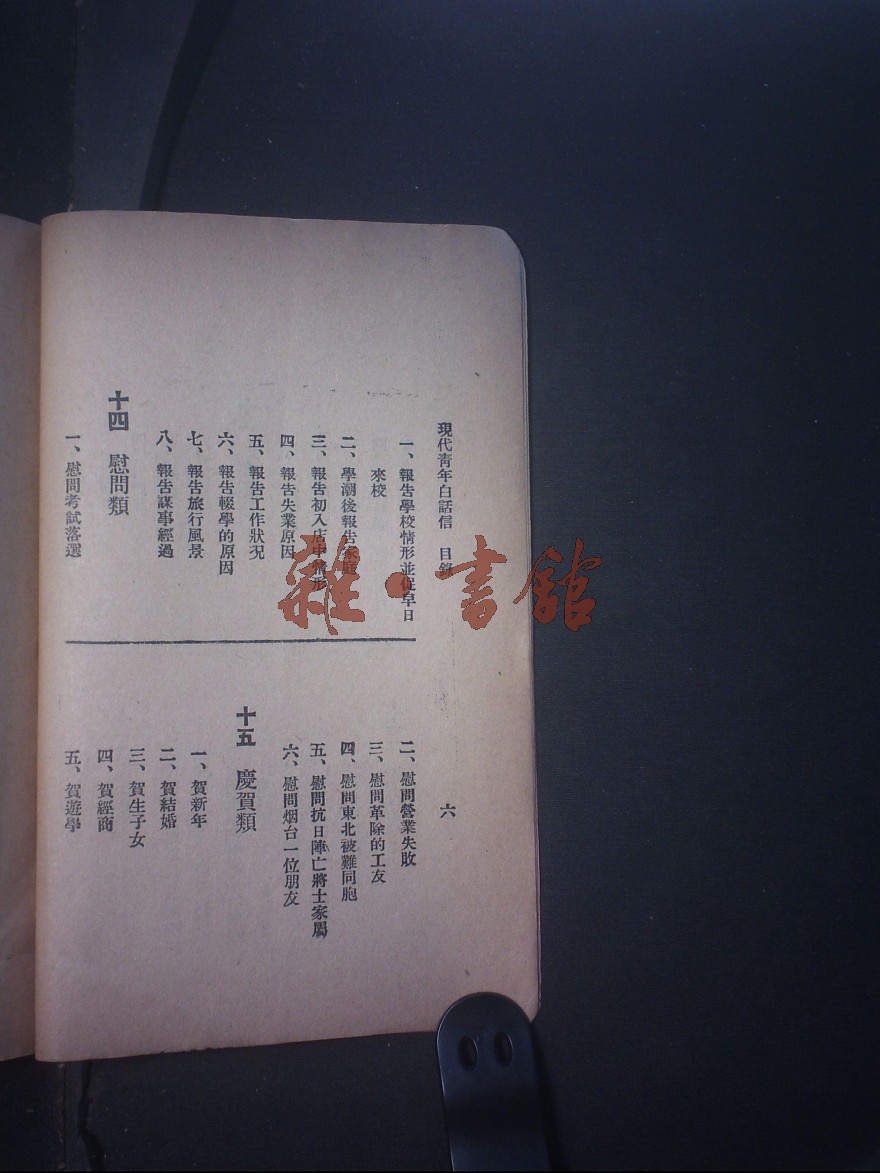 現代青年白話信　目錄
六
一、報告學校情形並促早日
來校
二、學潮後報告家庭
三、報告初入店中情形
四、報告失業原因
五、報告工作狀況
六、報告輟學的原因
七、報告旅行風景
八、報告謀事經過
十四　慰問類
一、慰問考試落選
二、慰問營業失敗
三、慰問革除的工友
四、慰問東北被難同胞
五、慰問抗日陣亡將士家屬
六、慰問烟台一位朋友
十五　慶賀類
一、賀新年
二、賀結婚
三、賀生子女
四、賀經商
五、賀遊學
雜·書館